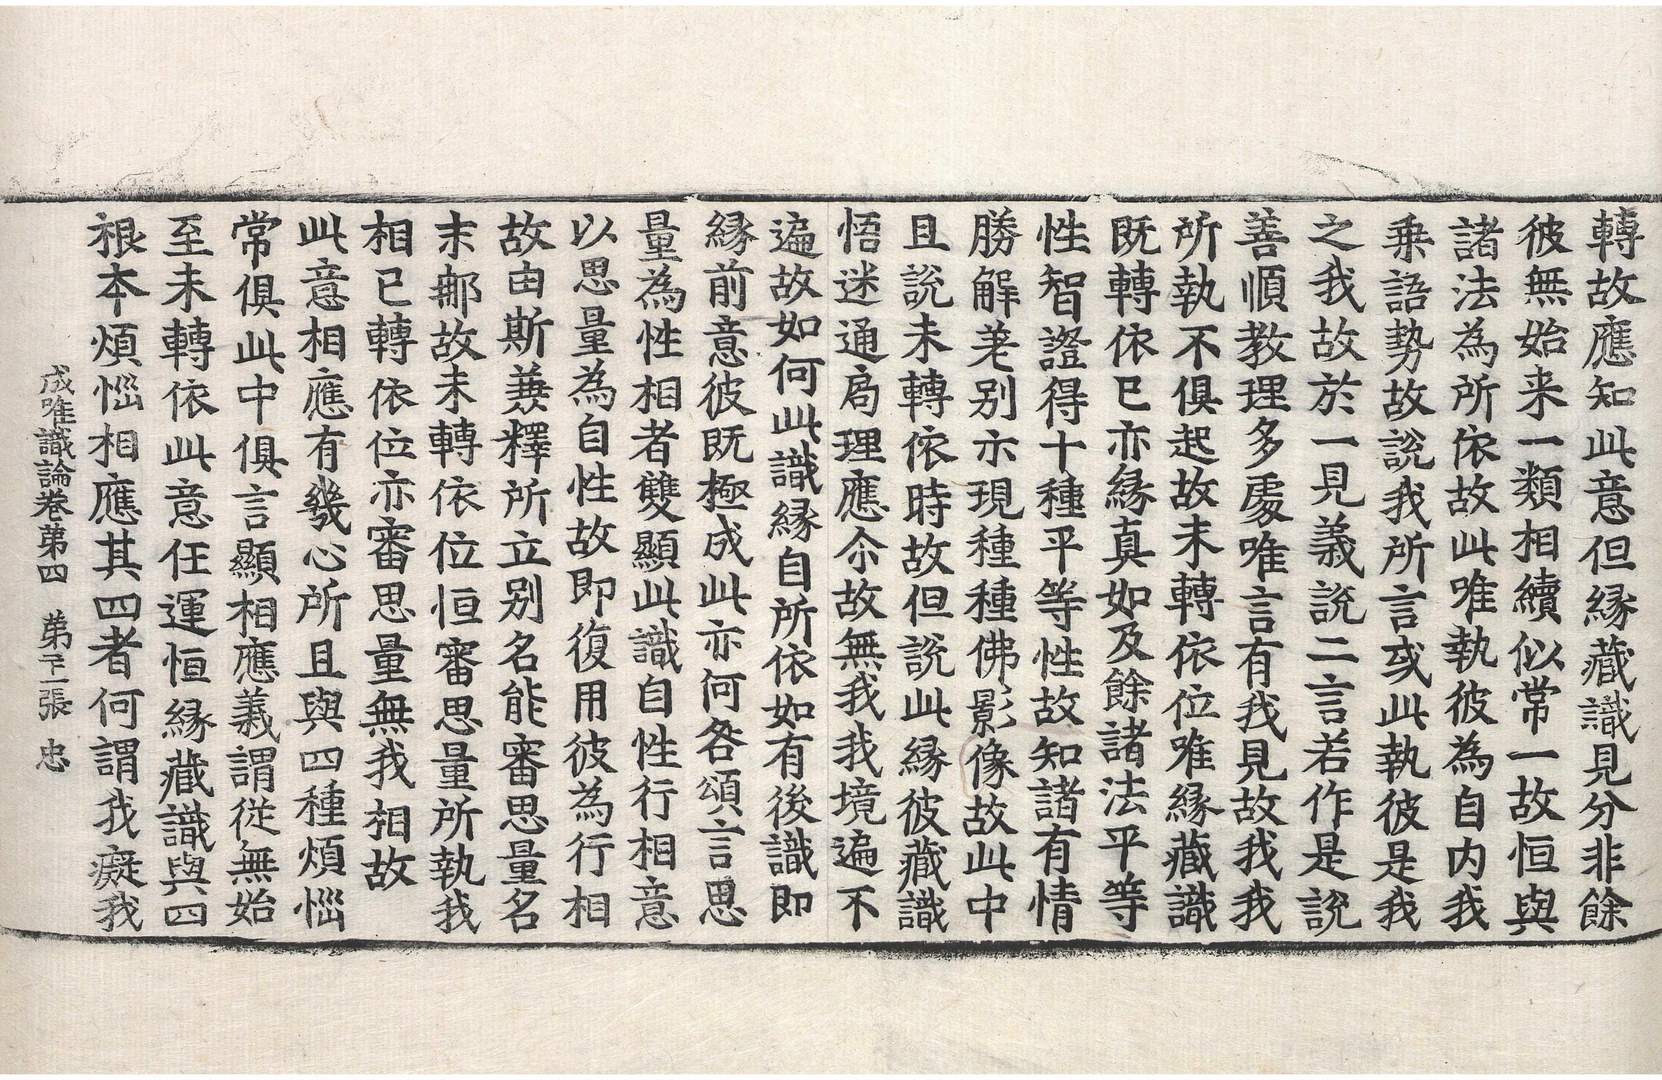 轉故應知此意但縁藏識見分非餘
彼無始来一類相續似常一故恒與
諸法為所依故此唯執彼為自内我
乗語勢故說我所言或此執彼是我
之我故於一見義說二言若作是說
善順教理多處唯言有我見故我我
所執不俱起故未轉依位唯縁藏識
既轉依已亦縁真如及餘諸法平等
性智證得十種平等性故知諸有情
勝解差别示現種種佛影像故此中
且說未轉依時故但說此縁彼藏識
悟迷通局理應尒故無我我境遍不
遍故如何此識縁自所依如有後識即
縁前意彼既極成此亦何咎頌言思
量為性相者雙顯此識自性行相意
以思量為自性故即復用彼為行相
故由斯兼釋所立别名能審思量名
末那故未轉依位恒審思量所執我
相已轉依位亦審思量無我相故
此意相應有幾心所且與四種煩惱
常俱此中俱言顯相應義謂從無始
至未轉依此意任運恒縁藏識與四
根本煩惱相應其四者何謂我癡我
成唯識論卷第四　第二張　忠